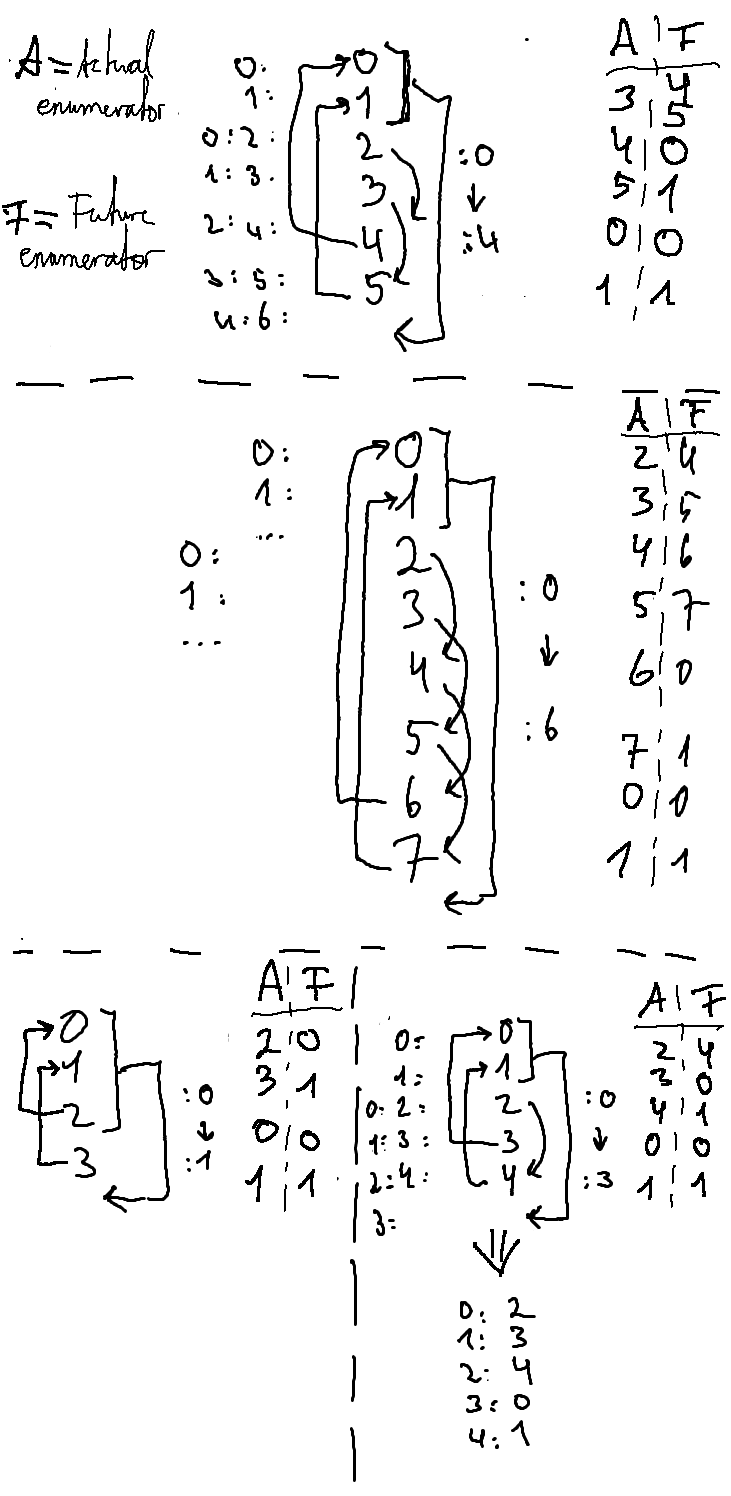 A = Actual
enumerator
F = Future
enumerator
0:
1:
0:2:
1:3.
2:4:
3:5:
4:6:
0
1
2
3
4
5
:0
:4
A F
3 4
5
4 0
5 1
0 0
1 1
0:
1:
...
0:
1:
...
0
1
2
3
4
5
6
7
:0
:6
A F
2 4
3 5
4 6
5 7
6 0
7 1
0 0
1 1
0
1
2
3
:0
:1
A F
2 0
3 1
0 0
1 1
0:
1:
0:2:
1:3:
2:4:
3:
0
1
2
3
4
:0
:3
A F
2 4
3 0
4 1
0 0
1 1
0: 2
1: 3
2: 4
3: 0
4: 1